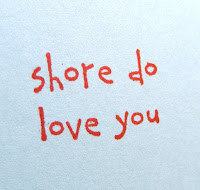 shore do
love you